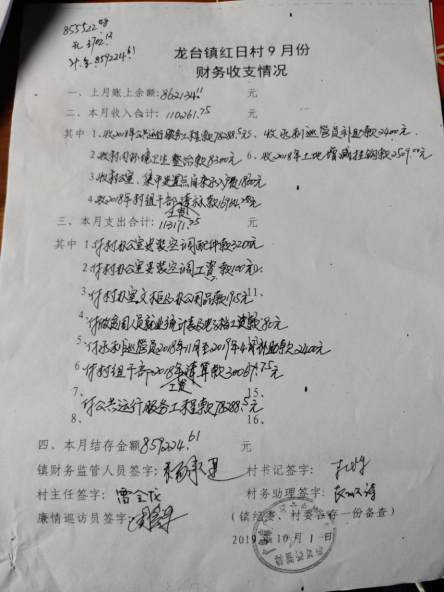 855522.48
3702.13
859224.61
龙台镇红日村9月份
财务收支情况
一、上月账上余额:862134.11 元
二、本月收入合计:110261.75 元
其中 1、收2018年公共运行服务工程款78288.5元 5、收水利巡管员补助款2400元
2、收村内环境卫生整治款8300元 6、收2018年土地增减挂钩款2509.00元
3、收村公室、集中安置点自来水入户费1800元
4、收2018年村组干部工资款16964.25元
三、本月支出合计:113171.25 元
其中 1、付村办公室安装空调配件款3200元
2、付村办公室安装空调工资款100元
3、付村办公室文柜及办公用品款1915 11、
4、付做贫困人员就业统计表及电子档工资款80元
5、付水利巡管员2018年11月至2019年4月补助款2400元
6、付村组干部2018年清算款30067.75元
工资
7、付公共运行服务工程款78288.5元 15、
8、 16、
四、本月结存金额859224.61 元
镇财务监管人员签字: 村书记签字:
村主任签字:曾全成 村务助理签字:
廉情巡访员签字: (镇经委、村委各存一份备查)
2019年10月1日